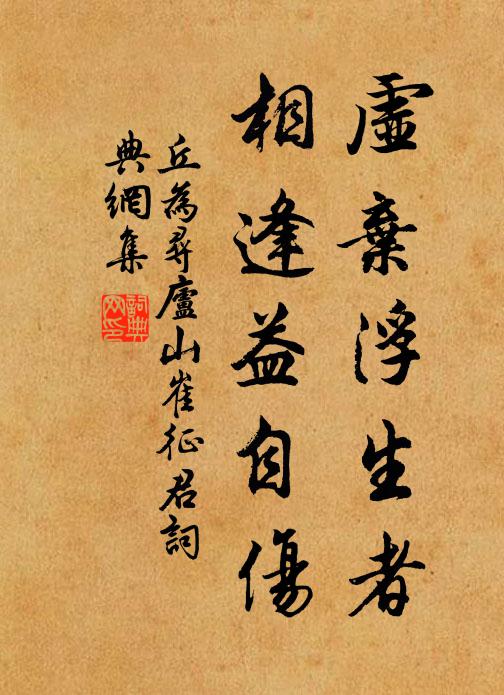 虛棄浮生者
相逢益自傷
丘為尋廬山崔征君詞
典網集
詞典
网印